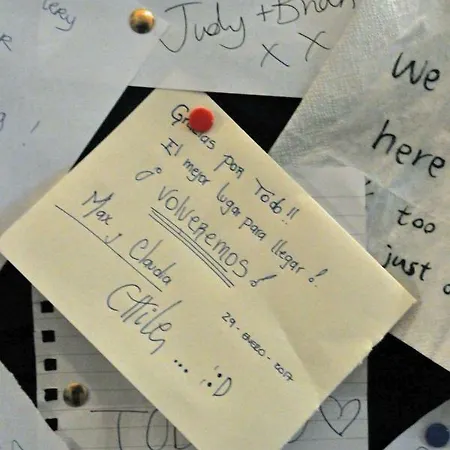 Judy + Brian
x x
We
here
too
just
Gracias por Todo!!
El mejor lugar para llegar!
¡VOLVEREMOS!
Max y Claudia
CHile
29 - ENERO - 2017
... :D
TO